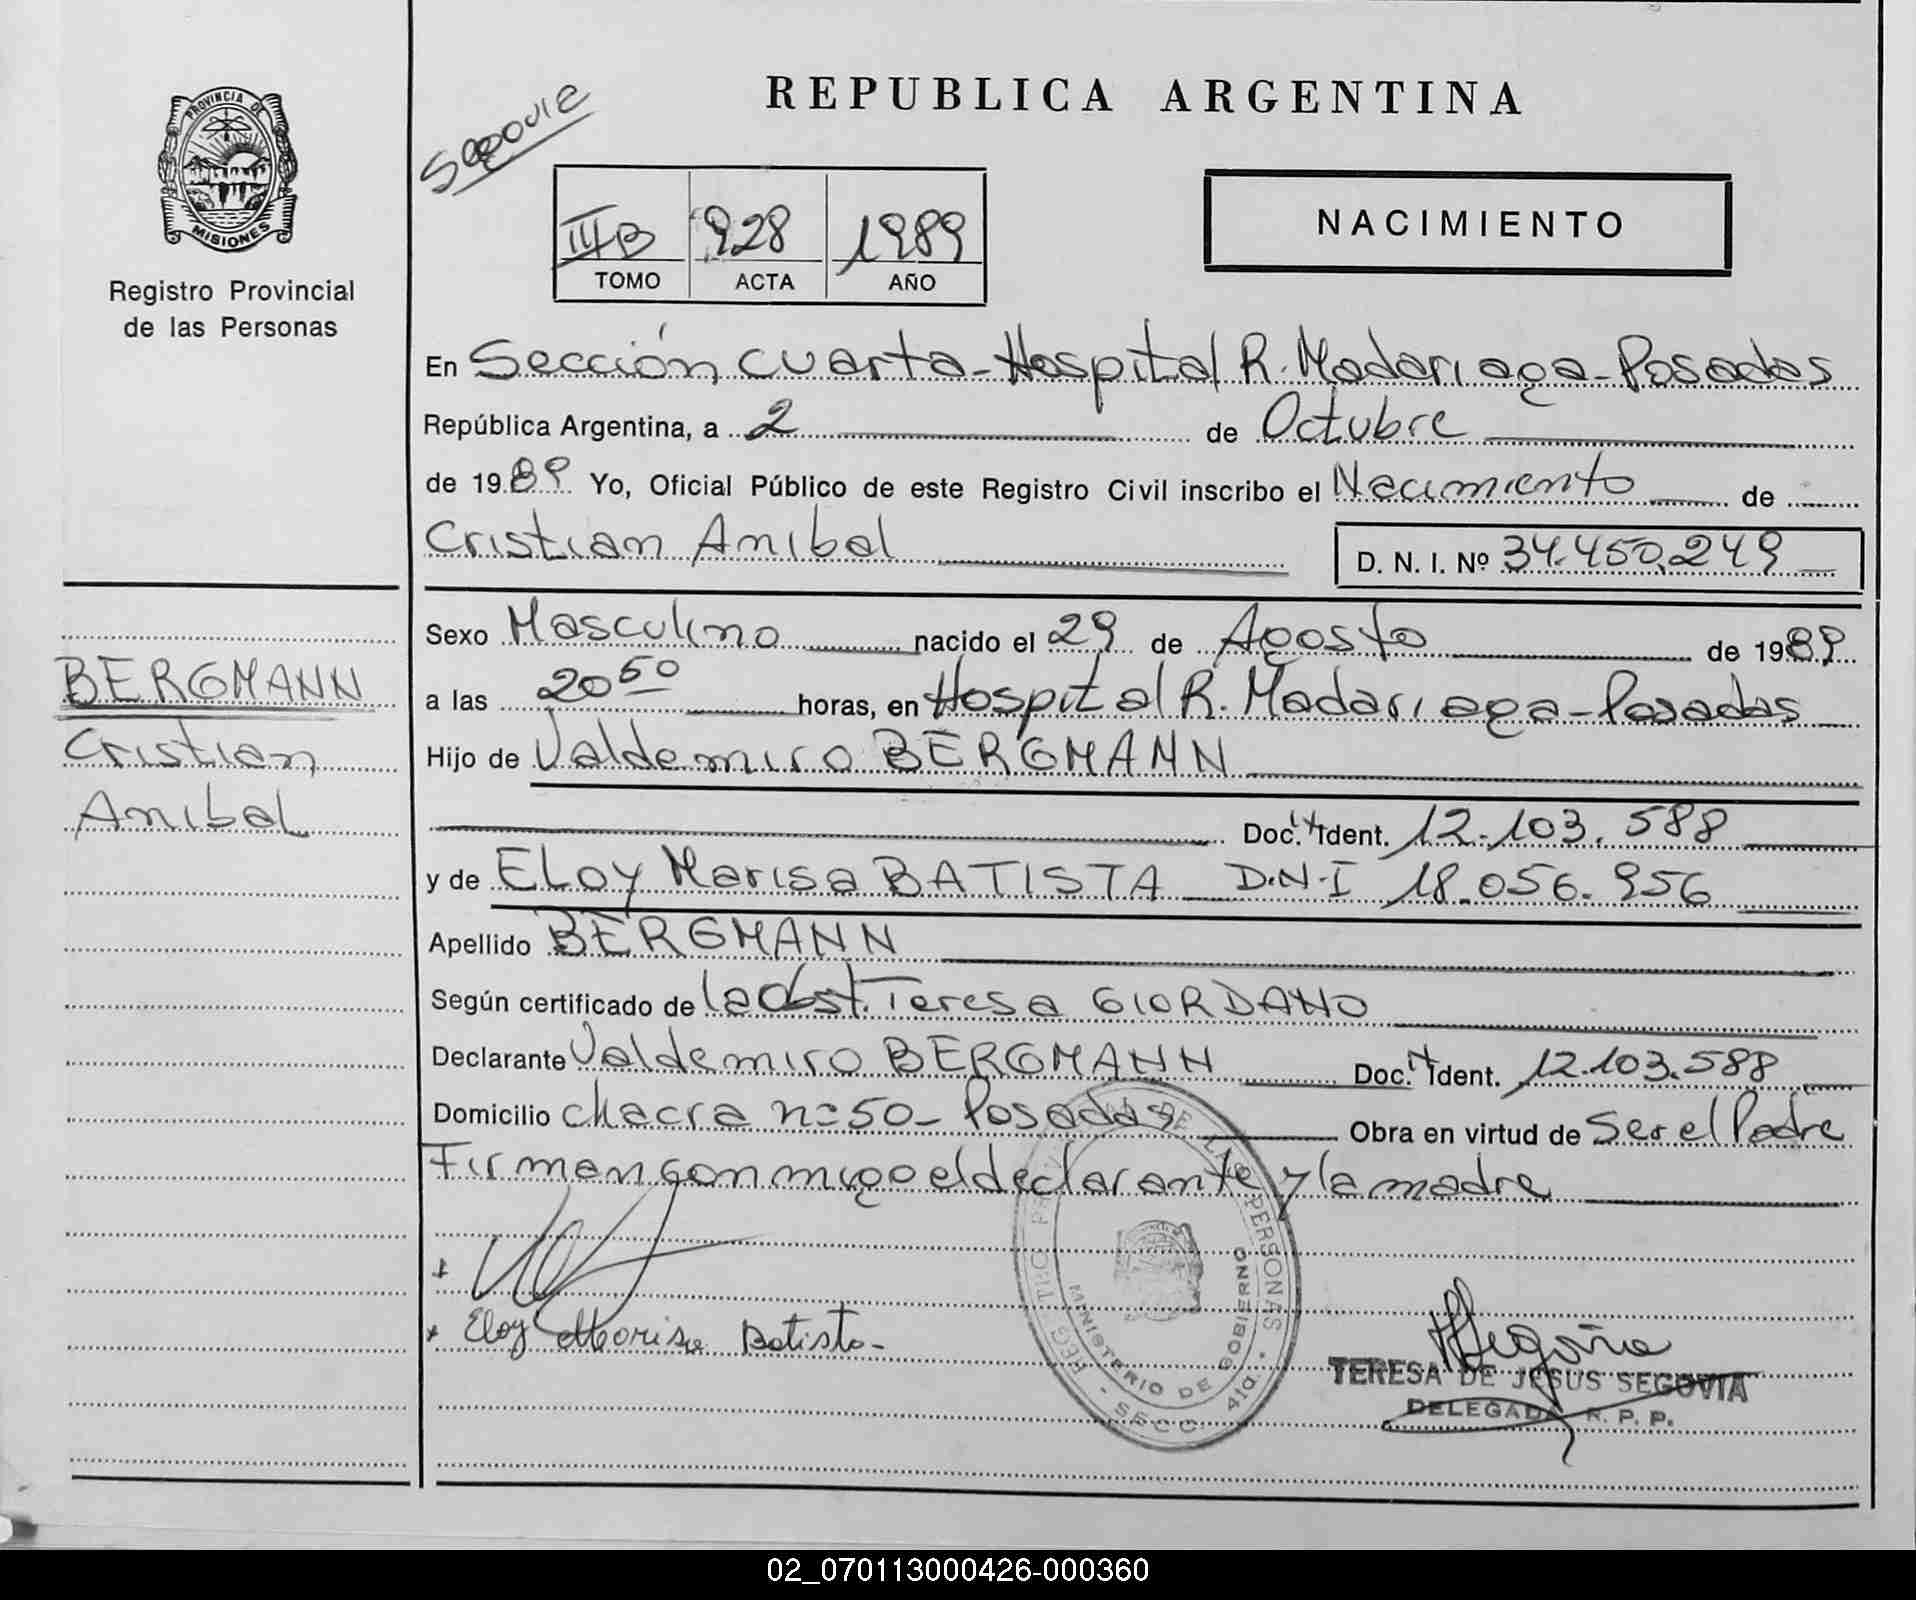 PROVINCIA DE
MISIONES
Registro Provincial
de las Personas
BERGMANN
Cristian
Anibal
Segovia
REPUBLICA ARGENTINA
NACIMIENTO
III B 928 1989
TOMO ACTA AÑO
En Sección Cuarta - Hospital R. Madariaga - Posadas
República Argentina, a 2 de Octubre
de 1989 Yo, Oficial Público de este Registro Civil inscribo el Nacimiento de
Cristian Anibal D. N. I. Nº 34.450.249
Sexo Masculino nacido el 29 de Agosto de 1989
a las 20 50 horas, en Hospital R. Madariaga - Posadas
Hijo de Valdemiro BERGMANN
Doc. Ident. 12.103.588
y de ELoy Marisa BATISTA D.N.I 18.056.956
Apellido BERGMANN
Según certificado de la Obst. Teresa GIORDANO
Declarante Valdemiro BERGMANN Doc. Ident. 12.103.588
Domicilio chacra nº 50 - Posadas Obra en virtud de Ser el Padre
Firman conmigo el declarante y la madre
Eloy Marisa Batista -
REG. PERSONAS
MINISTERIO DE GOBIERNO
SECC. 4ta.
Segovia
TERESA DE JESUS SEGOVIA
DELEGADA R. P. P.
02_070113000426-000360